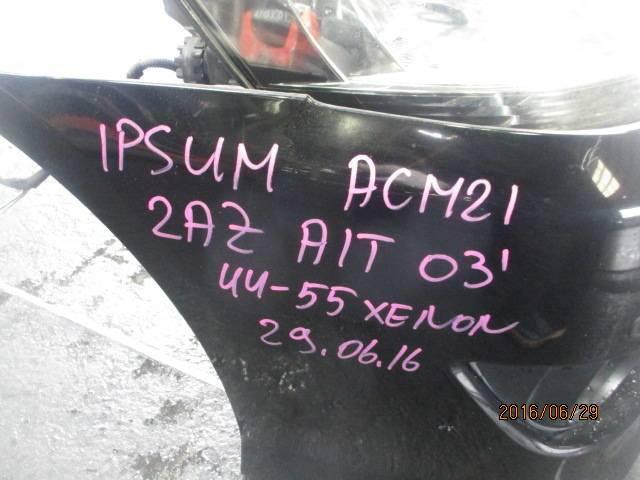 IPSUM ACM21
2AZ A/T 03'
44-55 XENON
29.06.16
2016/06/29